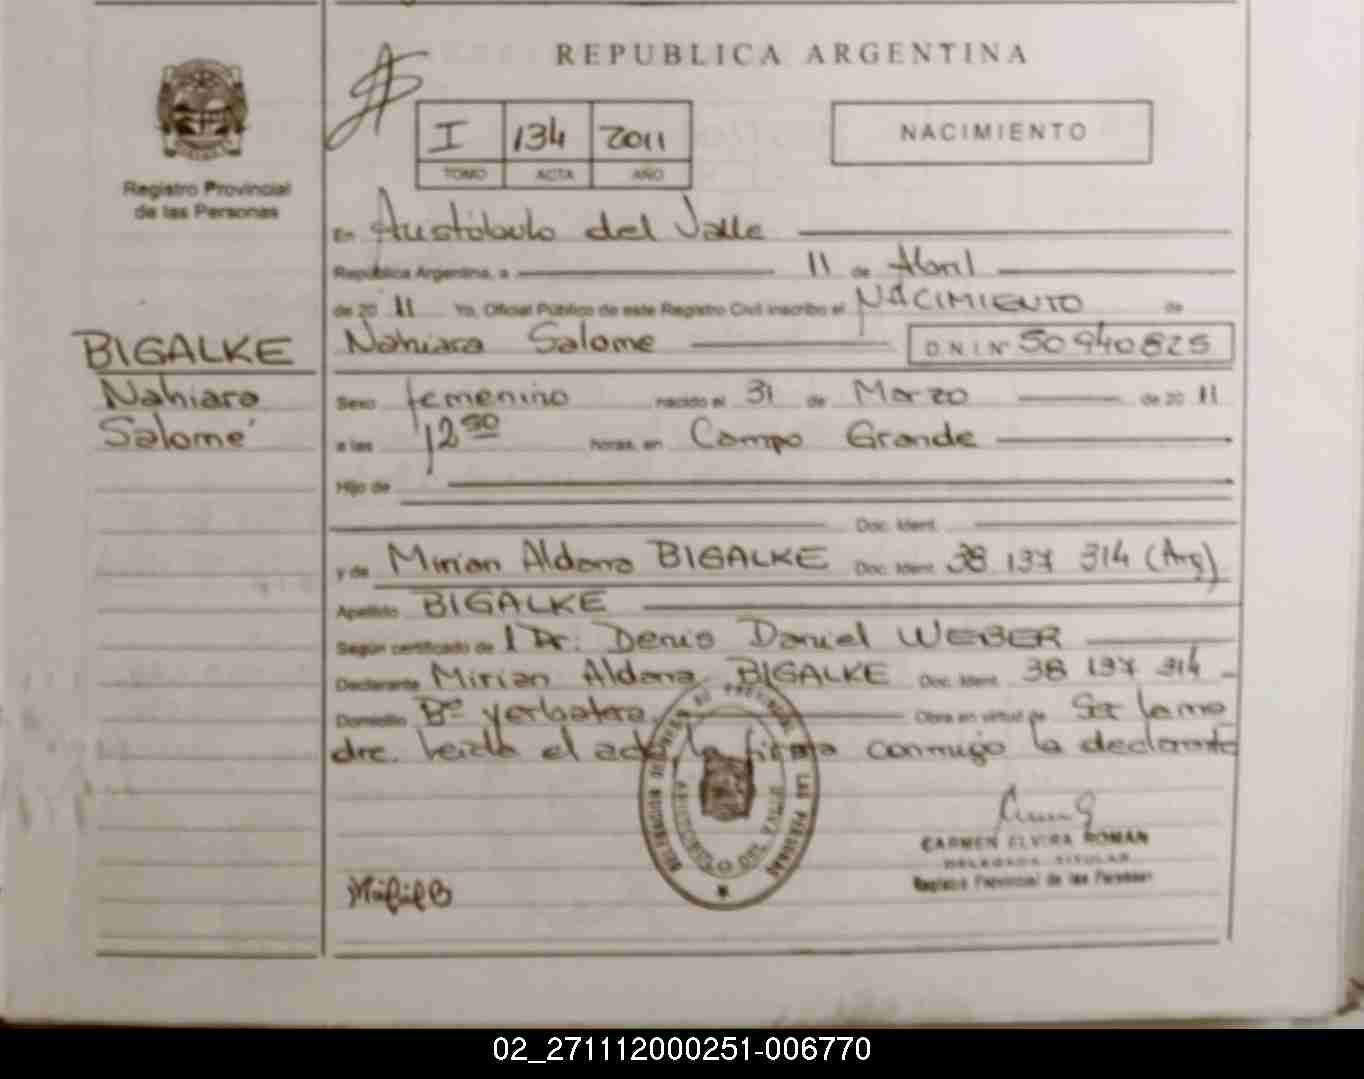 REPUBLICA ARGENTINA
I 134 2011
TOMO ACTA AÑO
NACIMIENTO
Registro Provincial
de las Personas
BIGALKE
Nahiara
Salomé
En Aristóbulo del Valle
República Argentina, a 11 de Abril
de 20 11 Yo, Oficial Público de este Registro Civil inscribo el NACIMIENTO de
Nahiara Salome D.N.I. Nº 50940825
Sexo femenino nacido el 31 de Marzo de 20 11
a las 12 30 horas, en Campo Grande
Hijo de
Doc. Ident.
y de Mirian Aldana BIGALKE Doc. Ident. 38 137 314 (Arg)
Apellido BIGALKE
Según certificado de l Dr: Denis Daniel WEBER
Declarante Mirian Aldana BIGALKE Doc. Ident. 38 137 314
Domicilio Bº yerbatera Obra en virtud de Ser la ma
dre. Leída el acta la firma conmigo la declarante
CARMEN ELVIRA ROMAN
DELEGADA TITULAR
Registro Provincial de las Personas
02_271112000251-006770